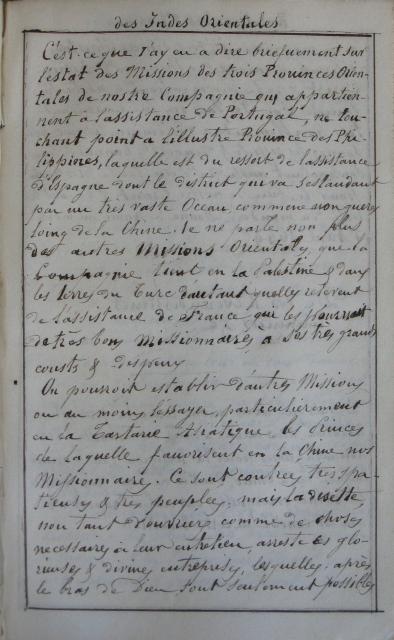 des Indes Orientales
C'est ce que j'ay eu a dire briefuement sur
l'estat des Missions des trois Prouinces Orien-
tales de nostre Compagnie qui appartien-
nent a l'assistance de Portugal, ne tou-
chant point a l'illustre Prouince des Phi-
lippines, laquelle est du ressort de l'assistance
d'Espagne dont le district qui va s'estandant
par un tres vaste Ocean commence non gueres
loing de la Chine. Je ne parle non plus
des autres Missions Orientales que la
Compagnie tient en la Palestine & dans
les terres du Turc d'autant quelles releuent
de l'assistance de France qui les pouruoit
de tres bons Missionnaires a ses tres grands
cousts & despens
On pourroit establir d'autres Missions
ou au moins l'essayer, particulierement
en la Tartarie Asiatique, les Princes
de laquelle fauorisent en la Chine nos
Missionnaires. Ce sont contrees tres spa-
tieuses & tres peuplees, mais la disette,
non tant d'ouuriers comme de choses
necessaires a leur entretien, arreste ces glo-
rieuses & diuines entreprises, lesquelles apres
le bras de Dieu sont seulement possibles